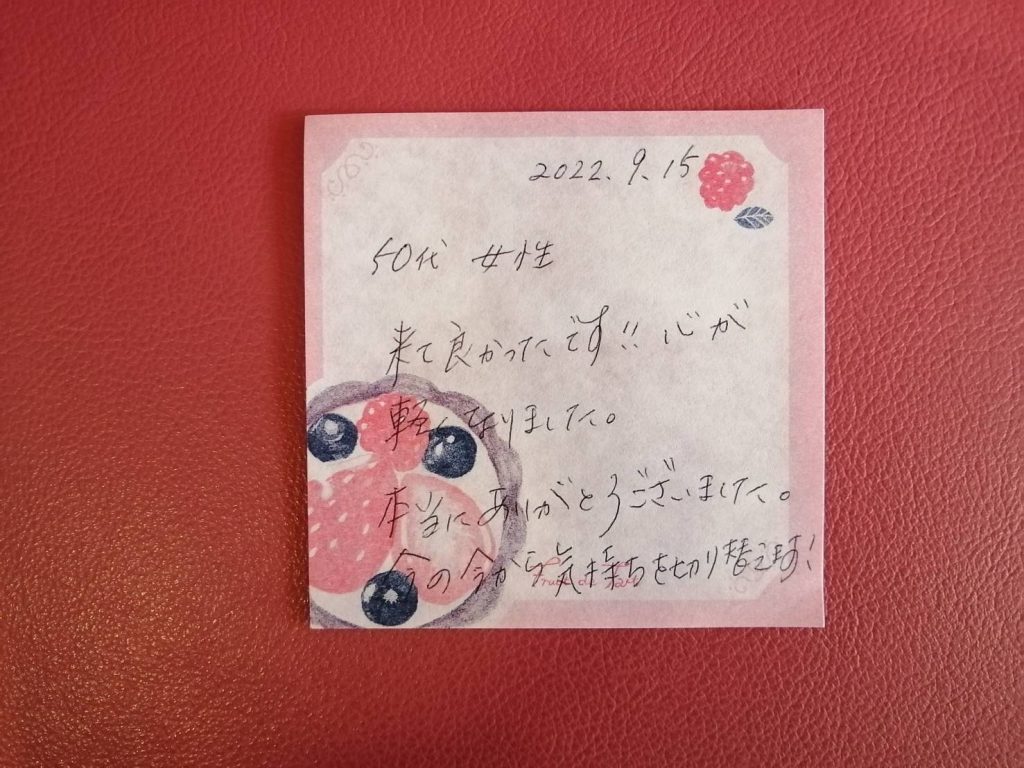 2022.9.15
50代 女性
来て良かったです!!心が
軽くなりました。
本当にありがとうございました。
今の今から気持ちを切り替えます!